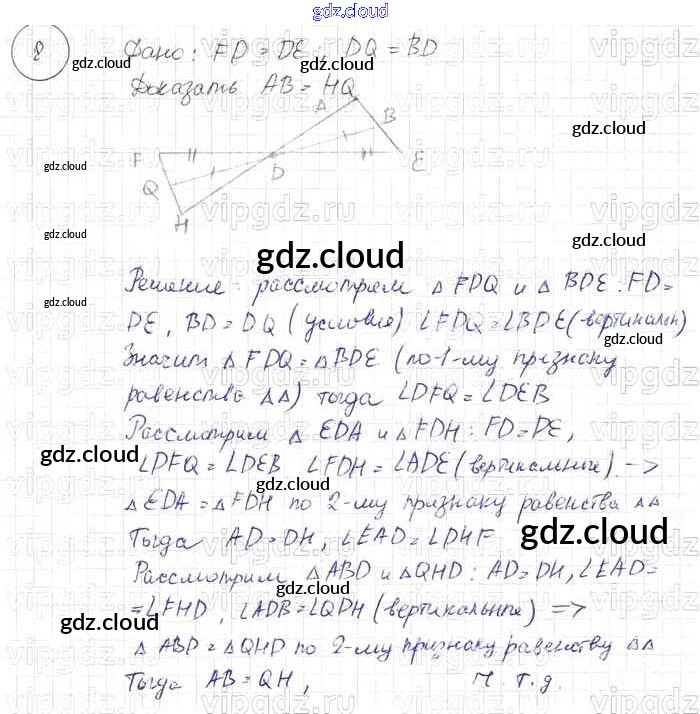 gdz.cloud
8 Дано: FD = DE; DQ = BD
gdz.cloud gdz.cloud
Доказать AB = HQ
A B
gdz.cloud
F D E
gdz.cloud
Q
gdz.cloud
H
gdz.cloud
gdz.cloud
Решение: рассмотрим △ FDQ и △ BDE: FD=
gdz.cloud
DE, BD = DQ (условия) ∠FDQ = ∠BDE (вертикальн)
gdz.cloud
Значит △ FDQ = △ BDE (по 1-му признаку
равенства △△) тогда ∠DFQ = ∠DEB
gdz.cloud
Рассмотрим △ EDA и △ FDH: FD = DE,
gdz.cloud
∠DFQ = ∠DEB ∠FDH = ∠ADE (вертикальные) ->
gdz.cloud
△ EDA = △ FDH по 2-му признаку равенства △△
gdz.cloud
Тогда AD = DH, ∠EAD = ∠DHF
Рассмотрим △ ABD и △QHD: AD = DH, ∠EAD=
gdz.cloud
= ∠FHD, ∠ADB = ∠QDH (вертикальные) =>
gdz.cloud gdz.cloud
△ ABD = △QHD по 2-му признаку равенству △△
gdz.cloud
Тогда AB = QH, ч.т.д.